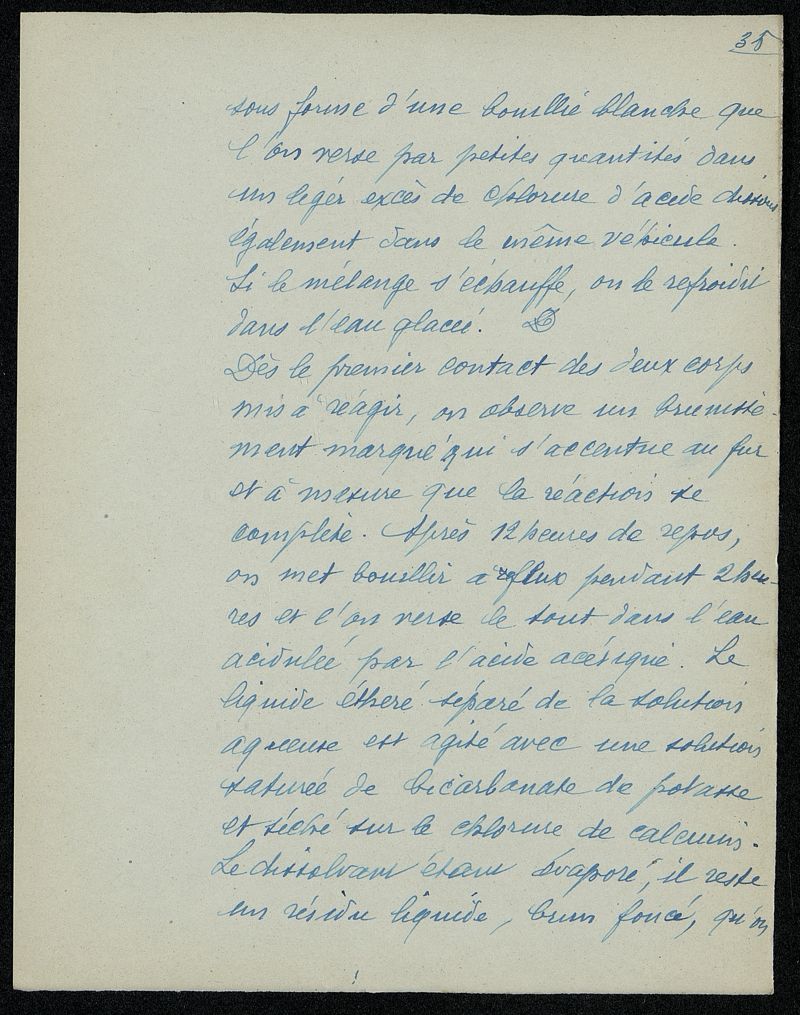 35
sous forme d'une bouillie blanche que
l'on verse par petites quantités dans
un léger excès de chlorure d'acide dissous
également dans le même véhicule.
Si le mélange s'échauffe, on le refroidit
dans l'eau glacée.
Dès le premier contact des deux corps
mis à réagir, on observe un brunisse-
ment marqué qui s'accentue au fur
et à mesure que la réaction se
complète. Après 12 heures de repos,
on met bouillir à reflux pendant 2 heu-
res et l'on verse le tout dans l'eau
acidulée par l'acide acétique. Le
liquide éthéré séparé de la solution
aqueuse est agité avec une solution
saturée de bicarbonate de potasse
et séché sur le chlorure de calcium.
Le dissolvant étant évaporé, il reste
un résidu liquide, brun foncé, qu'on